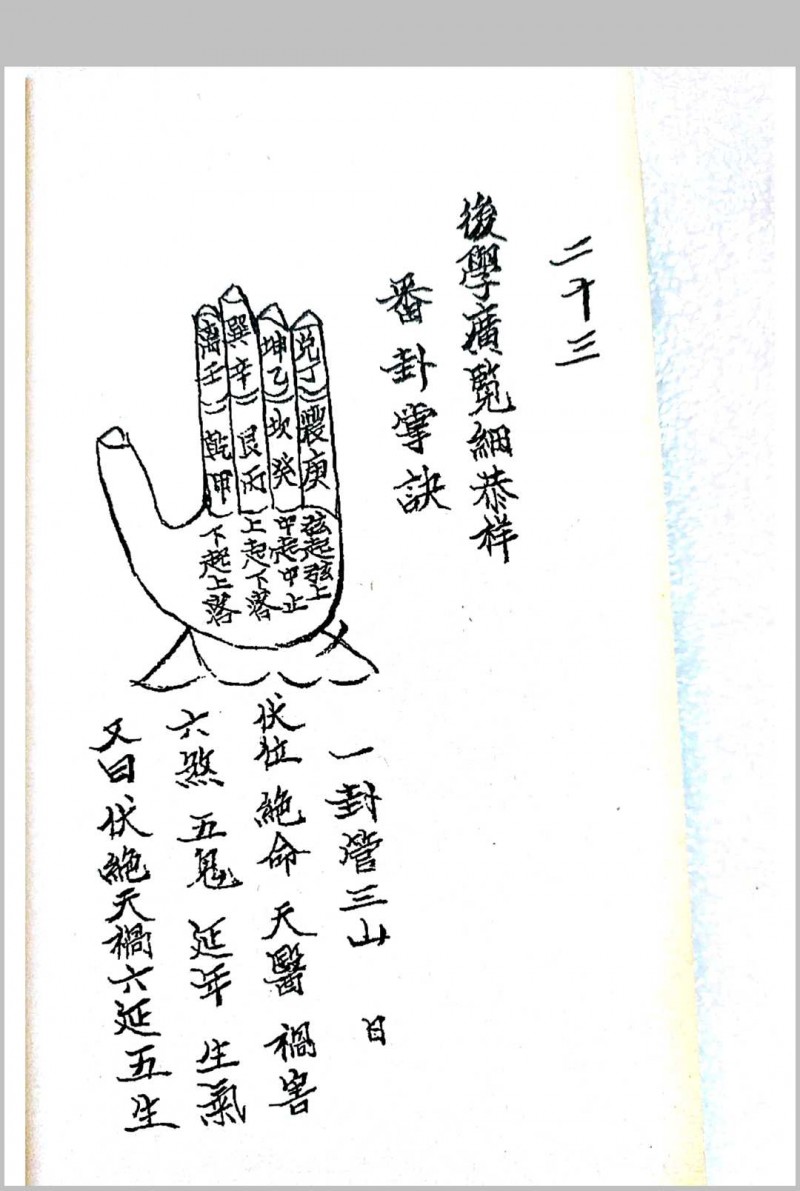 二十三
後學廣覧細恭样
番卦掌訣
兌丁 震庚
坤乙 坎癸
巽辛 艮丙
离壬 乾甲
弦起弦上
中起中止
上起下落
下起上落
一封管三山 曰
伏位 絶命 天醫 禍害
六煞 五鬼 延年 生氣
又曰伏絶天禍六延五生